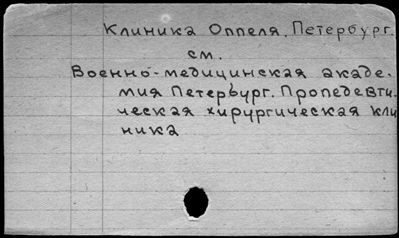 Клиника Оппеля. Петербург.
см.
Военно-медицинская акаде-
мия Петербург. Пропедевти-
ческая хирургическая кли
ника